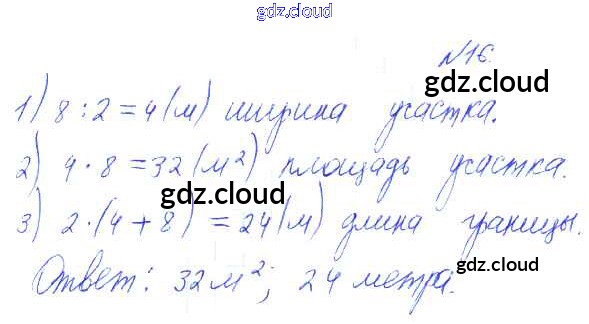 gdz.cloud
№16.
gdz.cloud
1) 8 : 2 = 4 (м) ширина участка.
2) 4 · 8 = 32 (м²) площадь участка.
gdz.cloud
gdz.cloud
3) 2 · (4 + 8) = 24 (м) длина границы.
Ответ: 32 м²; 24 метра.
gdz.cloud